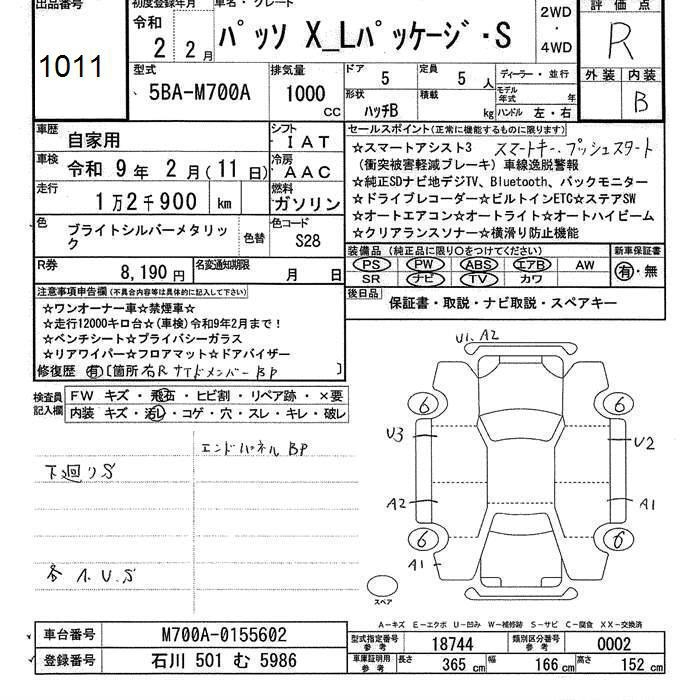 出品番号
1011
初度登録年月
令和
2 2月
車名・グレード
パッソ X_Lパッケージ・S
2WD
・
4WD
評価点
R
外装 内装
B
型式
5BA-M700A
排気量
1000
CC
ドア
5
定員
5 人
形状
ハッチB
積載
kg
ディーラー・並行
モデル年式
年
ハンドル 左・右
車歴
自家用
シフト
IAT
車検
令和 9年 2月(11日)
冷房
AAC
走行
1万2千900 km
燃料
ガソリン
色
ブライトシルバーメタリック
色替
色コード
S28
R券
8,190円
名変通知期限
月 日
セールスポイント(正常に機能するものに限ります)
☆スマートアシスト3 スマートキー、プッシュスタート
(衝突被害軽減ブレーキ) 車線逸脱警報
☆純正SDナビ地デジTV、Bluetooth、バックモニター
☆ドライブレコーダー☆ビルトインETC☆ステアSW
☆オートエアコン☆オートライト☆オートハイビーム
☆クリアランスソナー☆横滑り防止機能
装備品 (純正品に限り○をつけてください)
PS PW ABS エアB AW
SR ナビ TV カワ
新車保証書
有・無
後日品
保証書・取説・ナビ取説・スペアキー
注意事項申告欄(不具合内容等は具体的に記入して下さい)
☆ワンオーナー車☆禁煙車☆
☆走行12000キロ台☆(車検)令和9年2月まで!
☆ベンチシート☆プライバシーガラス
☆リアワイパー☆フロアマット☆ドアバイザー
修復歴 有〔箇所 右Rサイドメンバー BP 〕
検査員記入欄
FW キズ・飛石・ヒビ割・リペア跡・×要
内装 キズ・汚レ・コゲ・穴・スレ・キレ・破レ
エンドパネル BP
下廻りS
各 A.U.S
U1. A2
6
6
U3
U2
A2
A1
6
6
A1
スペア
A-キズ E-エクボ U-凹み W-補修跡 S-サビ C-腐食 XX-交換済
車台番号
M700A-0155602
登録番号
石川 501 む 5986
型式指定番号 参考
18744
類別区分番号 参考
0002
車庫証明用 参考
長さ 365 cm
幅 166 cm
高さ 152 cm